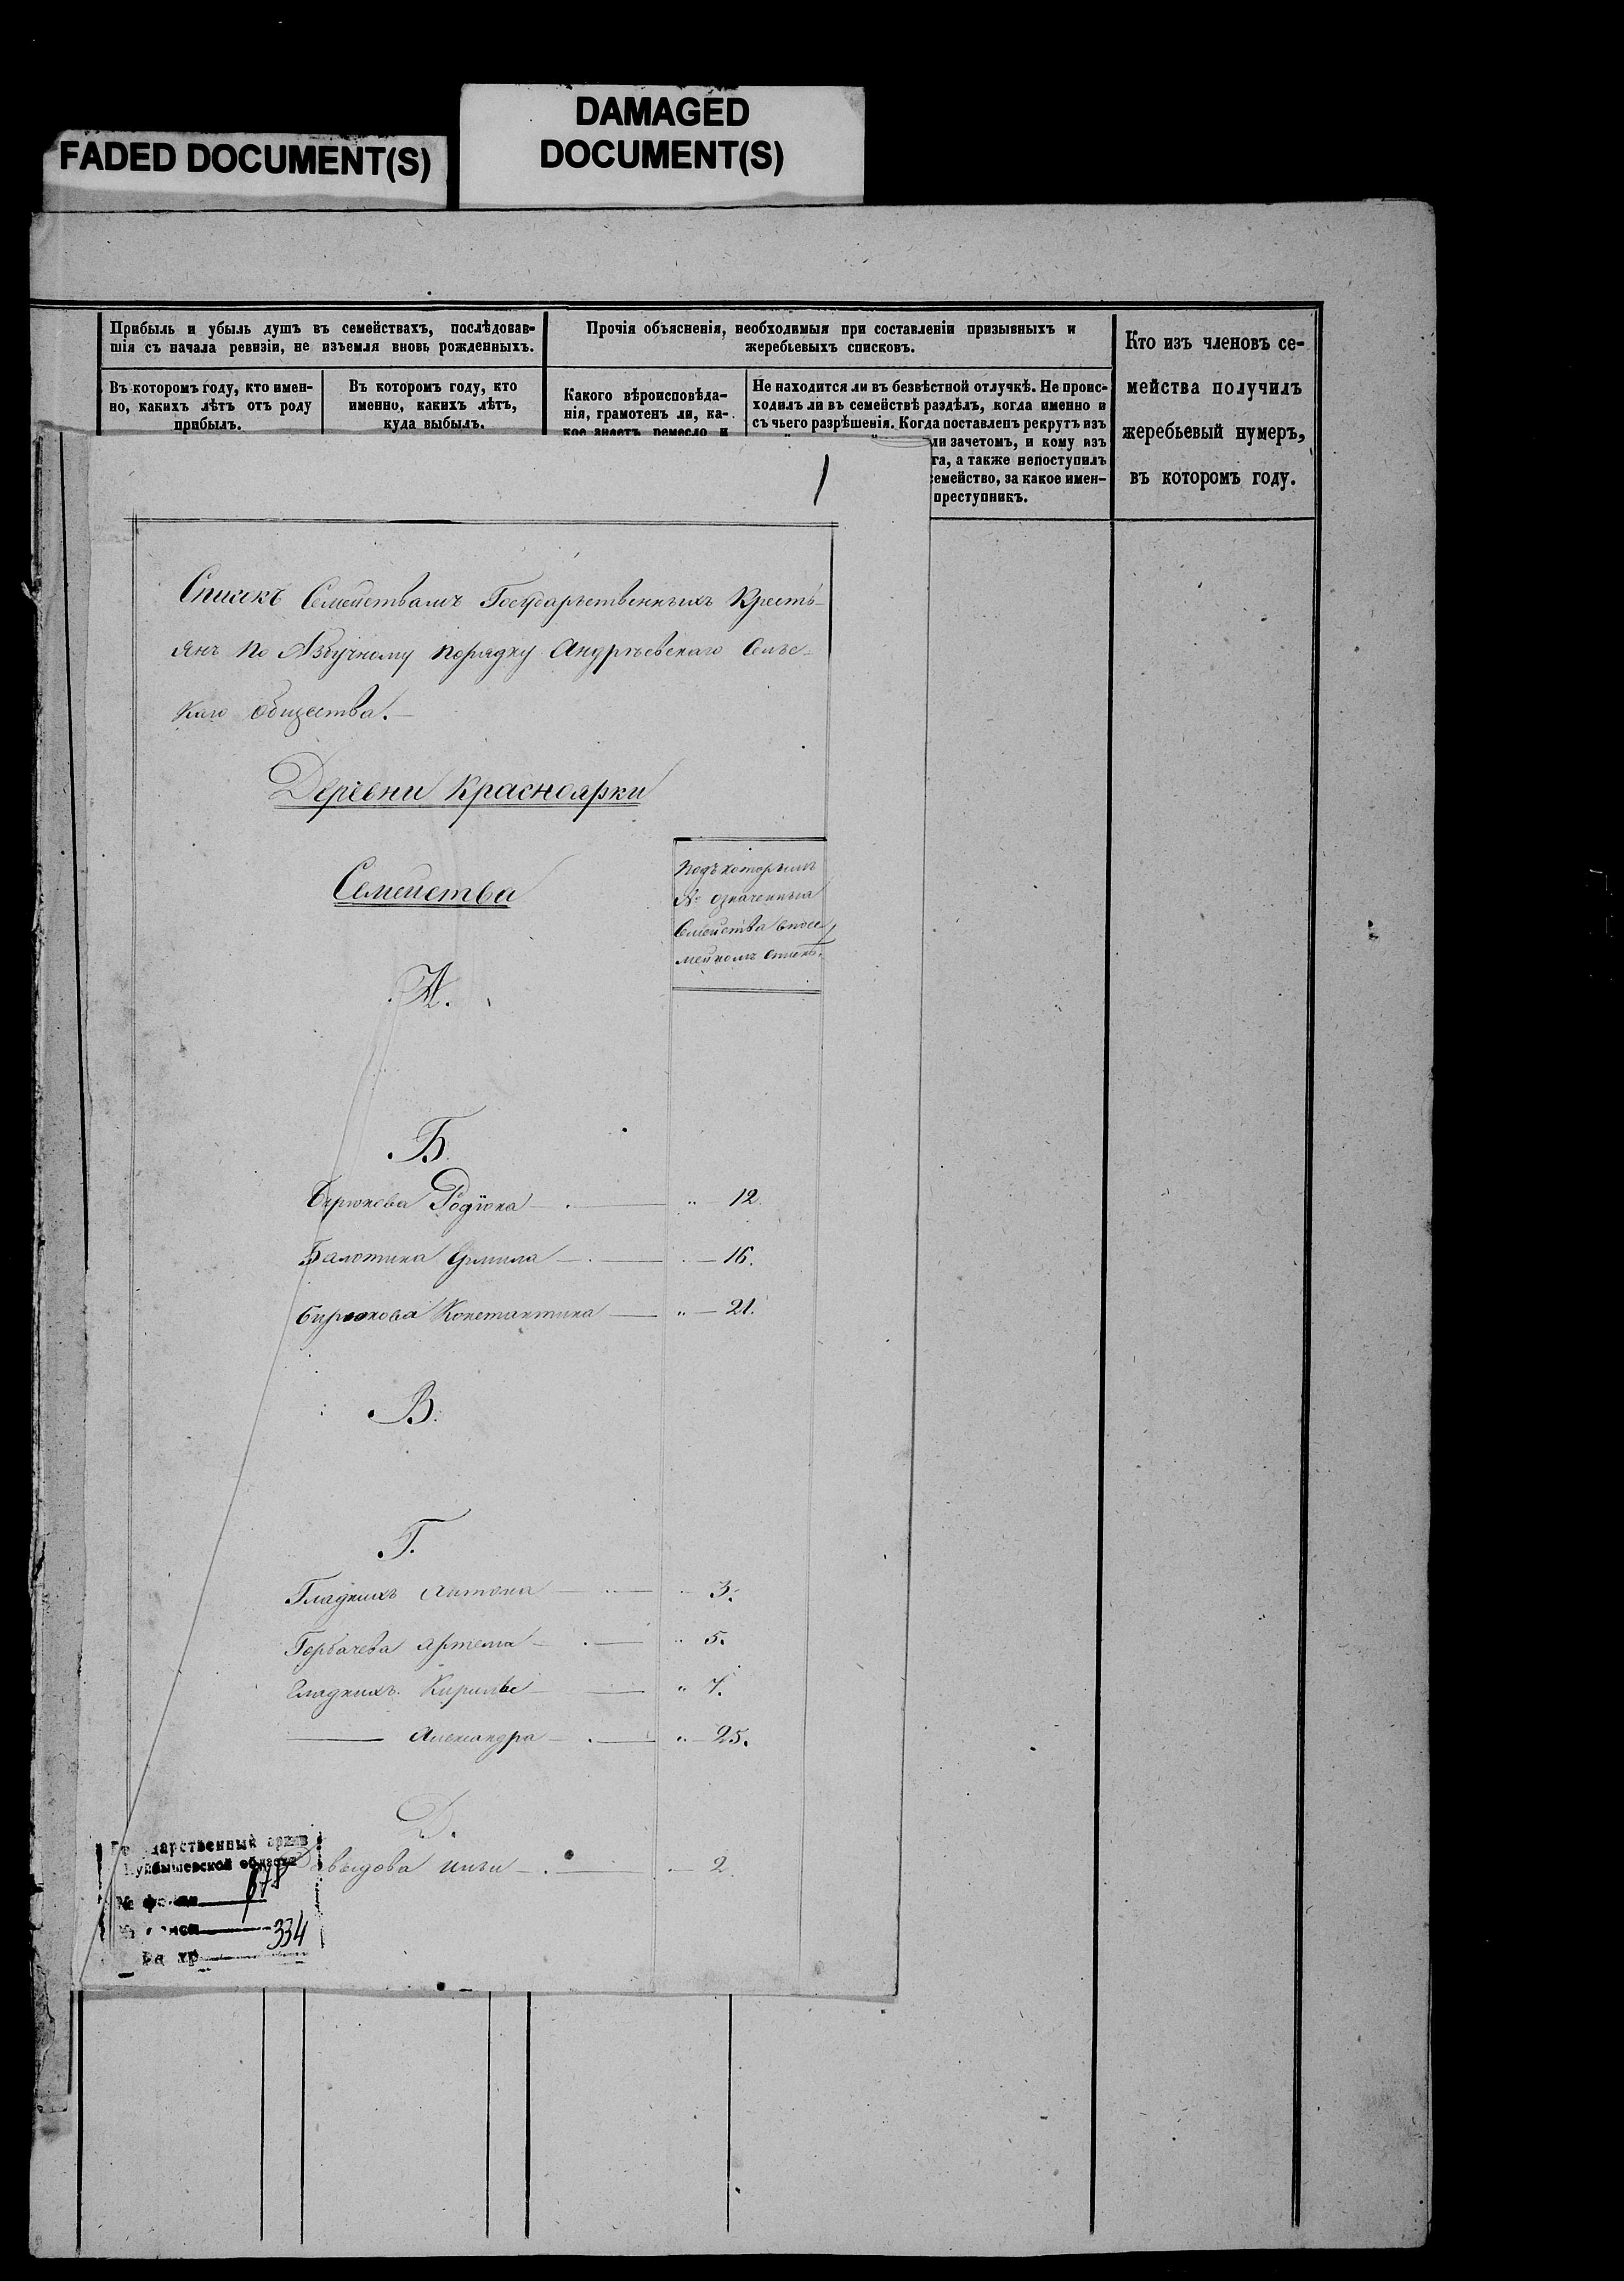 FADED DOCUMENT(S)
DAMAGED
DOCUMENT(S)
Прибыль и убыль душъ въ семействахъ, послѣдовав-
шія съ начала ревизіи, не изъемля вновь рожденныхъ.
Въ которомъ году, кто имен-
но, какихъ лѣтъ отъ роду
прибылъ.
Въ которомъ году, кто
именно, какихъ лѣтъ,
куда выбылъ.
Прочія объясненія, необходимыя при составленіи призывныхъ и
жеребьевыхъ списковъ.
Какого вѣроисповѣда-
нія, грамотенъ ли, ка-
кое знаетъ ремесло и
Не находится ли въ безвѣстной отлучкѣ. Не проис-
ходилъ ли въ семействѣ раздѣлъ, когда именно и
съ чьего разрѣшенія. Когда поставленъ рекрутъ изъ
ли зачетомъ, и кому изъ
га, а также непоступилъ
семейство, за какое имен-
преступникъ.
Кто изъ членовъ се-
мейства получилъ
жеребьевый нумеръ,
въ которомъ году.
1
Списокъ Семействамъ Государственныхъ Кресть-
янъ по Азбучному порядку Андреевскаго Сельс-
каго общества.
Деревни Красноярки
Семейства
Подъ которымъ
№ означенныя
Семейства
А.
Б.
Бирюкова Родіона 12.
16.
Бирюкова Константина 21.
В.
Г.
Гладкихъ Антона 3.
Горбачева Артема 5.
Гладкихъ Кирилы 7.
Александра 25.
Д.
Давыдова 2
Государственный архив
Куйбышевской области
№ фонда 678
№ описи
Ед. хр. 334